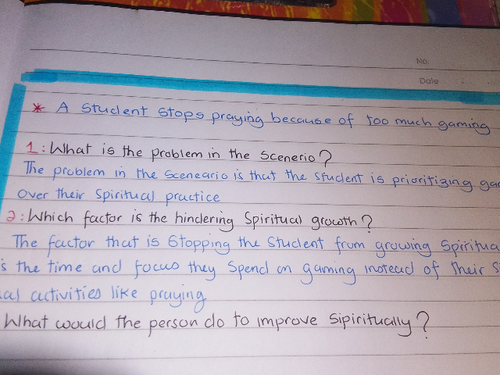 No.
Date
* A Student Stops praying because of too much gaming
1: What is the problem in the Scenerio?
The problem in the Sceneario is that the Student is prioritizing
over their Spiritual practice
2: Which factor is the hindering Spiritual growth?
The factor that is Stopping the Student from growing
the time and focus they Spend on gaming instead of their
activities like praying
What would the person do to improve Sipiritually?